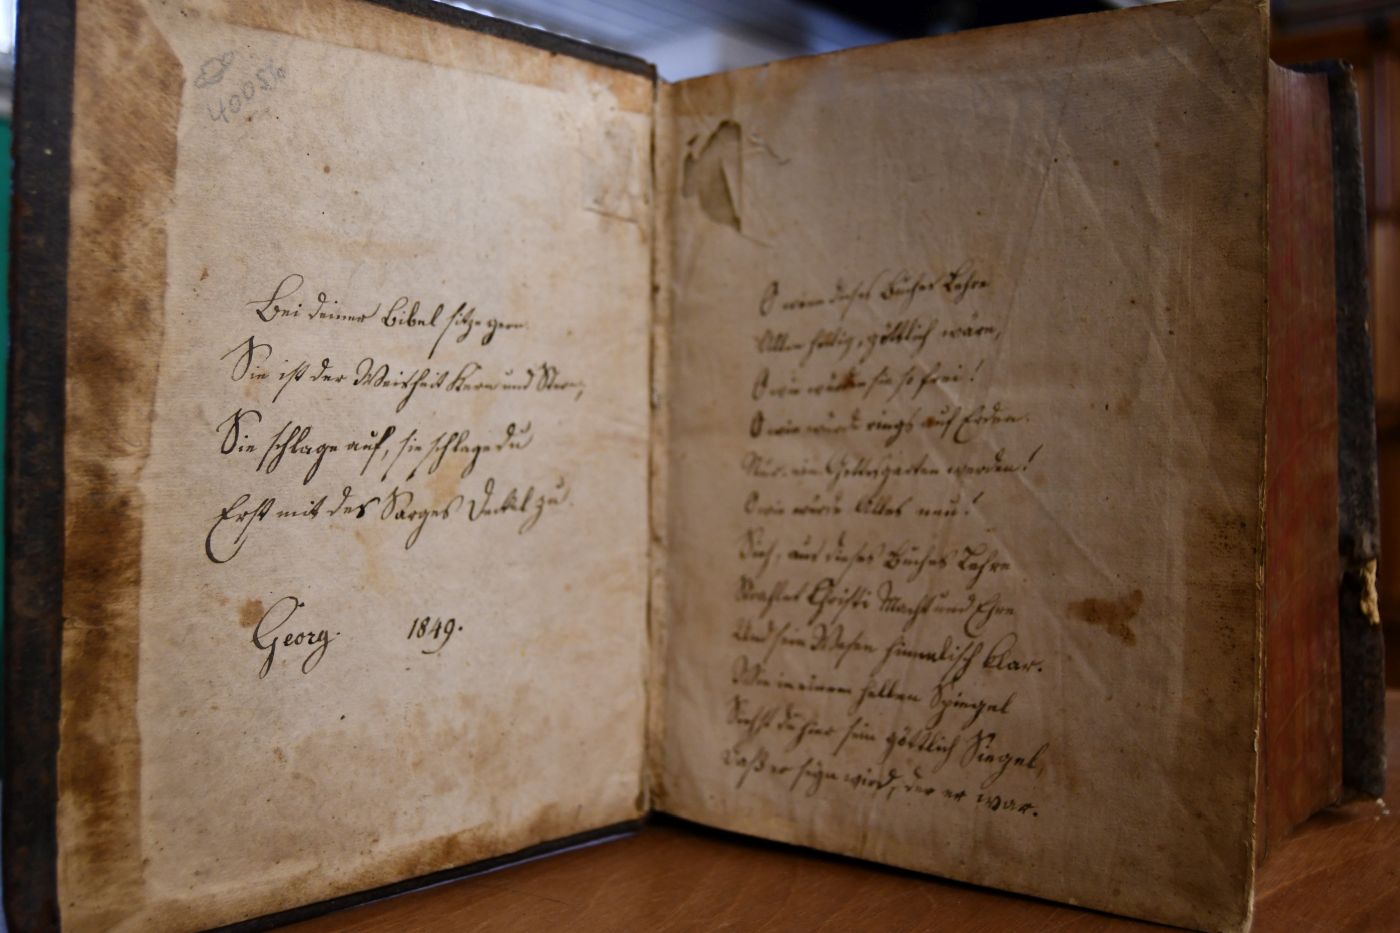 40056
Bei deiner Bibel sitze gern.
Sie ist der Weisheit Kern und Stern;
Sie schlage auf, sie schlage du
Erst mit des Sarges Deckel zu.
Georg. 1849.
O wenn dieses Buches Lehre
Allen heilig, göttlich wäre,
O wie würden sie so frei!
O wie würde rings auf Erden
Nur ein Gottesgarten werden!
O wie würde Alles neu!
Sieh, aus dieses Buches Lehre
Strahlet Christi Macht und Ehre
Und sein Wesen himmlisch klar.
Wie in einem hellen Spiegel
Siehst du hier sein göttlich Siegel,
Daß er seyn wird, der er war.